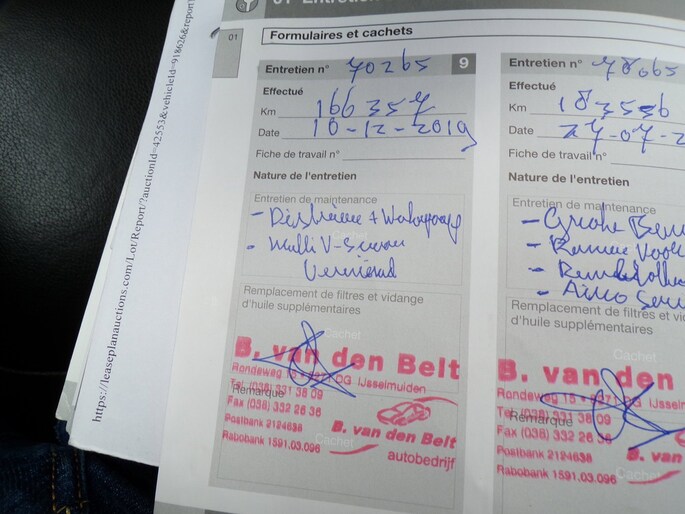 01 Entretien
01
Formulaires et cachets
Entretien n° 70265 9
Effectué
Km 166357
Date 10-12-2019
Fiche de travail n°
Nature de l'entretien
Entretien de maintenance
Cachet
- Multi V-Snaar
Vernieuwd
Remplacement de filtres et vidange
d'huile supplémentaires
Cachet
B. van den Belt
Rondeweg 15 • 8271 DG IJsselmuiden
Tel (038) 331 38 09
Remarque
Fax (038) 332 26 36
Postbank 2124638
Rabobank 1591.03.096
Cachet
B. van den Belt
autobedrijf
Entretien n° 78065
Effectué
Km 183556
Date 27-07-2
Fiche de travail n°
Nature de l'entretien
Entretien de maintenance
- Grote Beur
- Airco
Remplacement de filtres et
d'huile supplémentaires
Cachet
B. van den
Rondeweg 15 • 8271 DG IJsselm
Tel (038) 331 38 09
Remarque
Fax (038) 332 26 36
Postbank 2124638
Rabobank 1591.03.096
Cachet
B. van
https://leaseplanauctions.com/Lot/Report/?auctionId=42553&vehicleId=918626&report